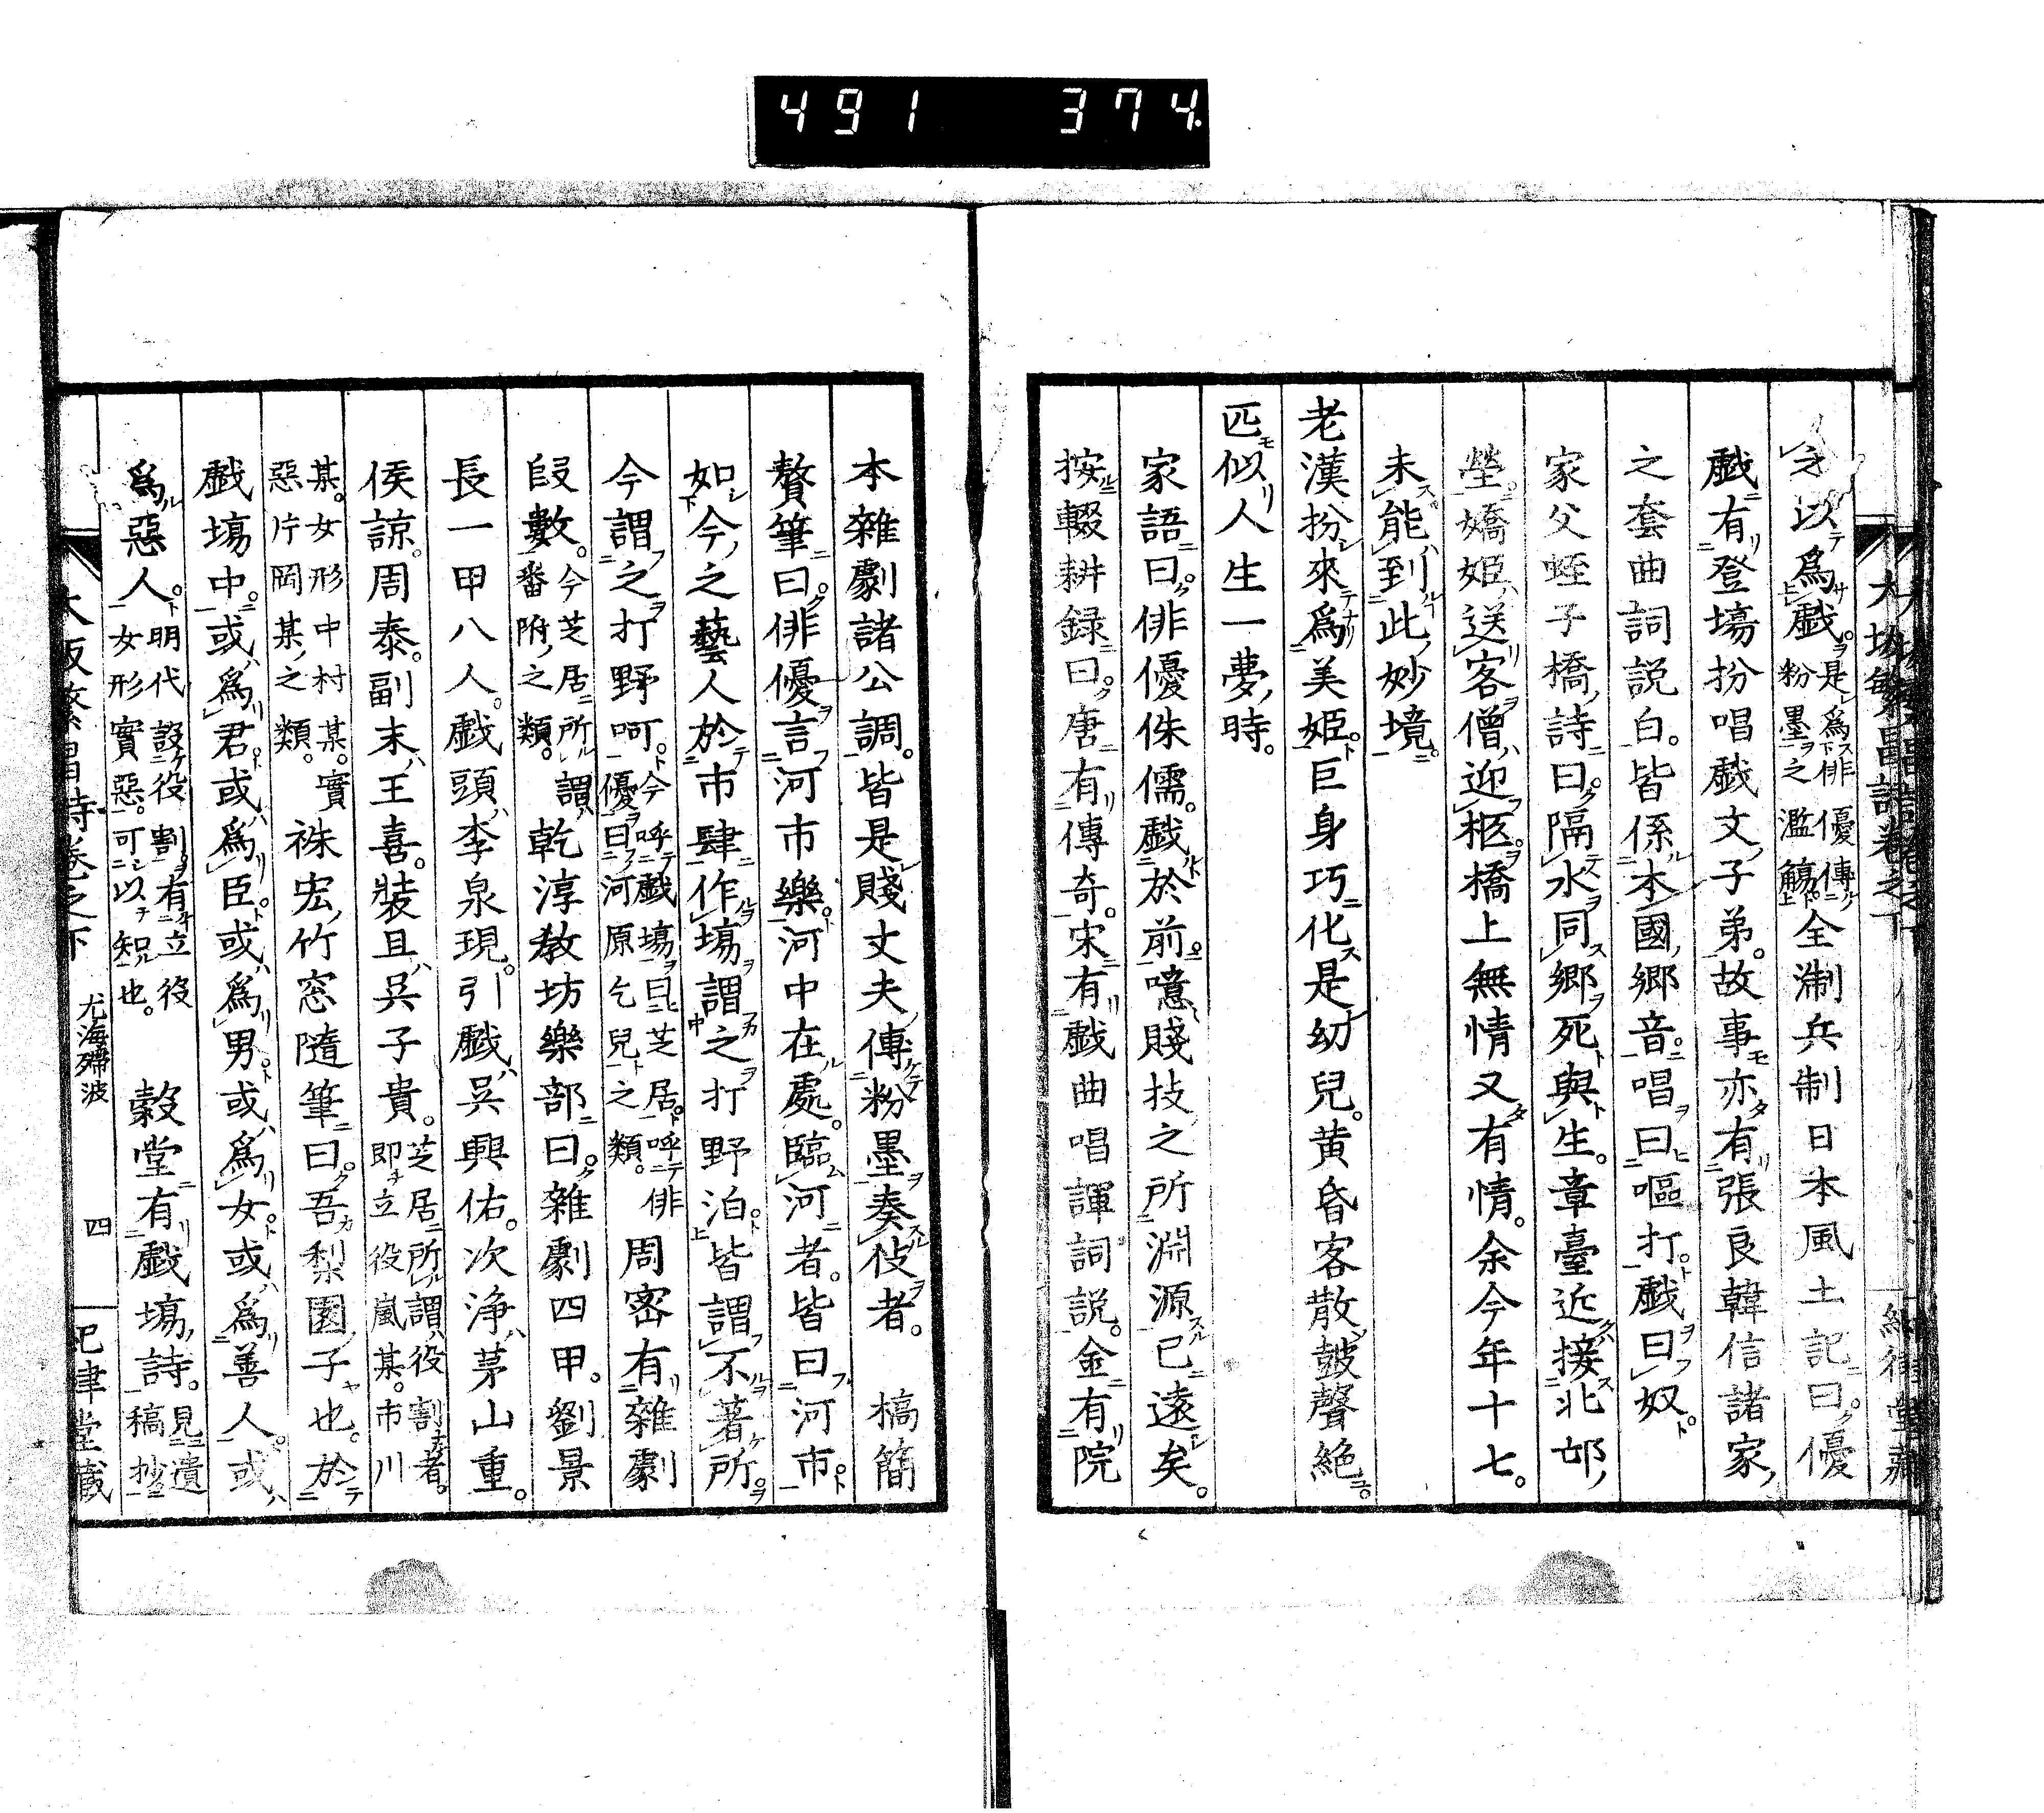 491 374
之以為戯是爲俳優傳粉墨之濫觴全淛兵制日本風土記曰優
戯有登塲扮唱戯文子弟故事亦有張良韓信諸家
之套曲詞説白皆係本國鄉音唱曰嘔打戯曰奴
家父蛭子橋詩曰隔水同鄉死與生章臺近接北邙
塋嬌姫送客僧迎柩橋上無情又有情余今年十七
未能到此妙境
老漢扮來爲美姫巨身巧化是幼兒黄昏客散鼓聲絶
匹似人生一夢時
家語曰俳優侏儒戯於前噫賤技之所淵源已遠矣
按輟耕録曰唐有傳奇宋有戯曲唱諢詞説金有院
本雜劇諸公調皆是賤丈夫傳粉墨奏伎者 槁簡
贅筆曰俳優言河市樂河中在處臨河者皆曰河市
如今之藝人於市肆作塲謂之打野泊皆謂不著所
今謂之打野呵今呼戯塲曰芝居呼俳優曰河原乞兒之類 周密有雜劇
段數今芝居所謂番附之類 乾淳教坊樂部曰雜劇四甲劉景
長一甲八人戯頭李泉現引戯呉興佑次淨茅山重
侯諒周泰副末王喜裝旦呉子貴芝居所謂役割者即立役嵐某市川
某女形中村某實惡片岡某之類 祩宏竹窓隨筆曰吾梨園子也於
戯塲中或爲君或爲臣或爲男或爲女或爲善人或
爲惡人明代設役割有立役女形實惡可以知也 穀堂有戯塲詩見遺稿抄
大阪繁昌詩卷之下 尤海歸波 四 己聿堂藏